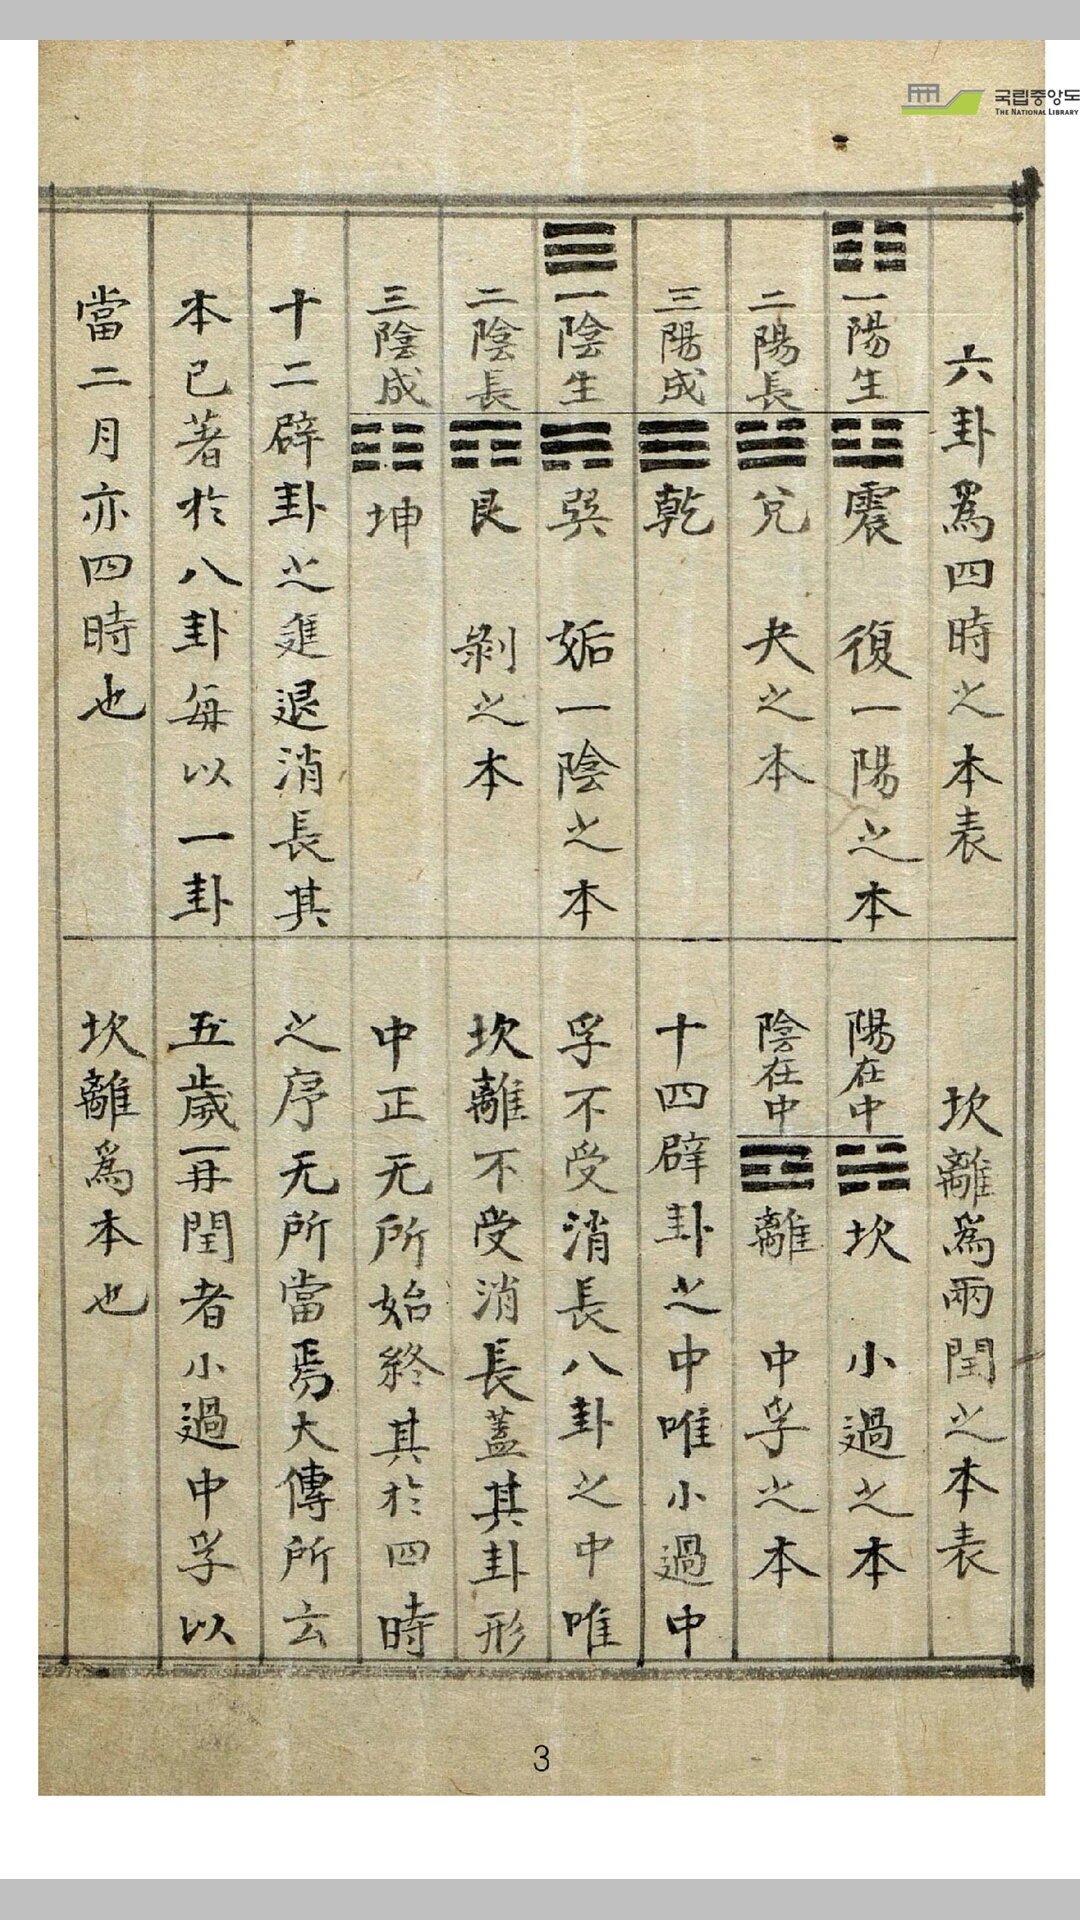 국립중앙도
THE NATIONAL LIBRARY
六卦爲四時之本表
☷一陽生☳震 復一陽之本
二陽長☱兌 夬之本
三陽成☰乾
☰一陰生☴巽 姤一陰之本
二陰長☶艮 剝之本
三陰成☷坤
十二辟卦之進退消長其
本已著於八卦每以一卦
當二月亦四時也
坎離爲兩閏之本表
陽在中☵坎 小過之本
陰在中☲離 中孚之本
十四辟卦之中唯小過中
孚不受消長八卦之中唯
坎離不受消長蓋其卦形
中正无所始終其於四時
之序无所當焉大傳所云
五歲再閏者小過中孚以
坎離爲本也
3